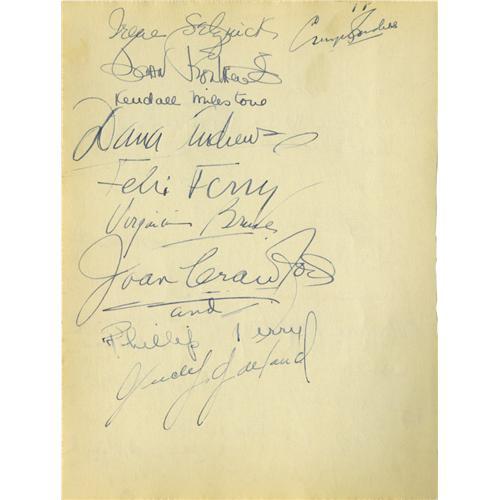 Irene Selznick
Jean
Kendall Milestone
Dana Andrews
Feli Ferry
Virginia Bruce
Joan Crawford
and
Phillip Terry
Judy Garland